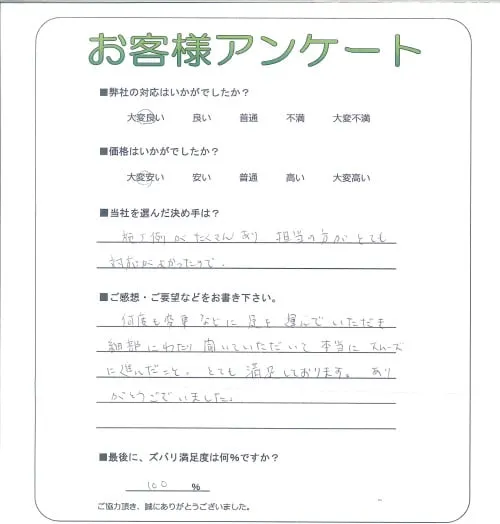 お客様アンケート
■弊社の対応はいかがでしたか？
大変良い 良い 普通 不満 大変不満
■価格はいかがでしたか？
大変安い 安い 普通 高い 大変高い
■当社を選んだ決め手は？
施工例がたくさんあり 担当の方がとても
対応がよかったので。
■ご感想・ご要望などをお書き下さい。
何度も変更などに足を運んでいただき
細部にわたり聞いていただいて本当にスムーズ
に進んだこと、とても満足しております。あり
がとうございました。
■最後に、ズバリ満足度は何％ですか？
100 ％
ご協力頂き、誠にありがとうございました。